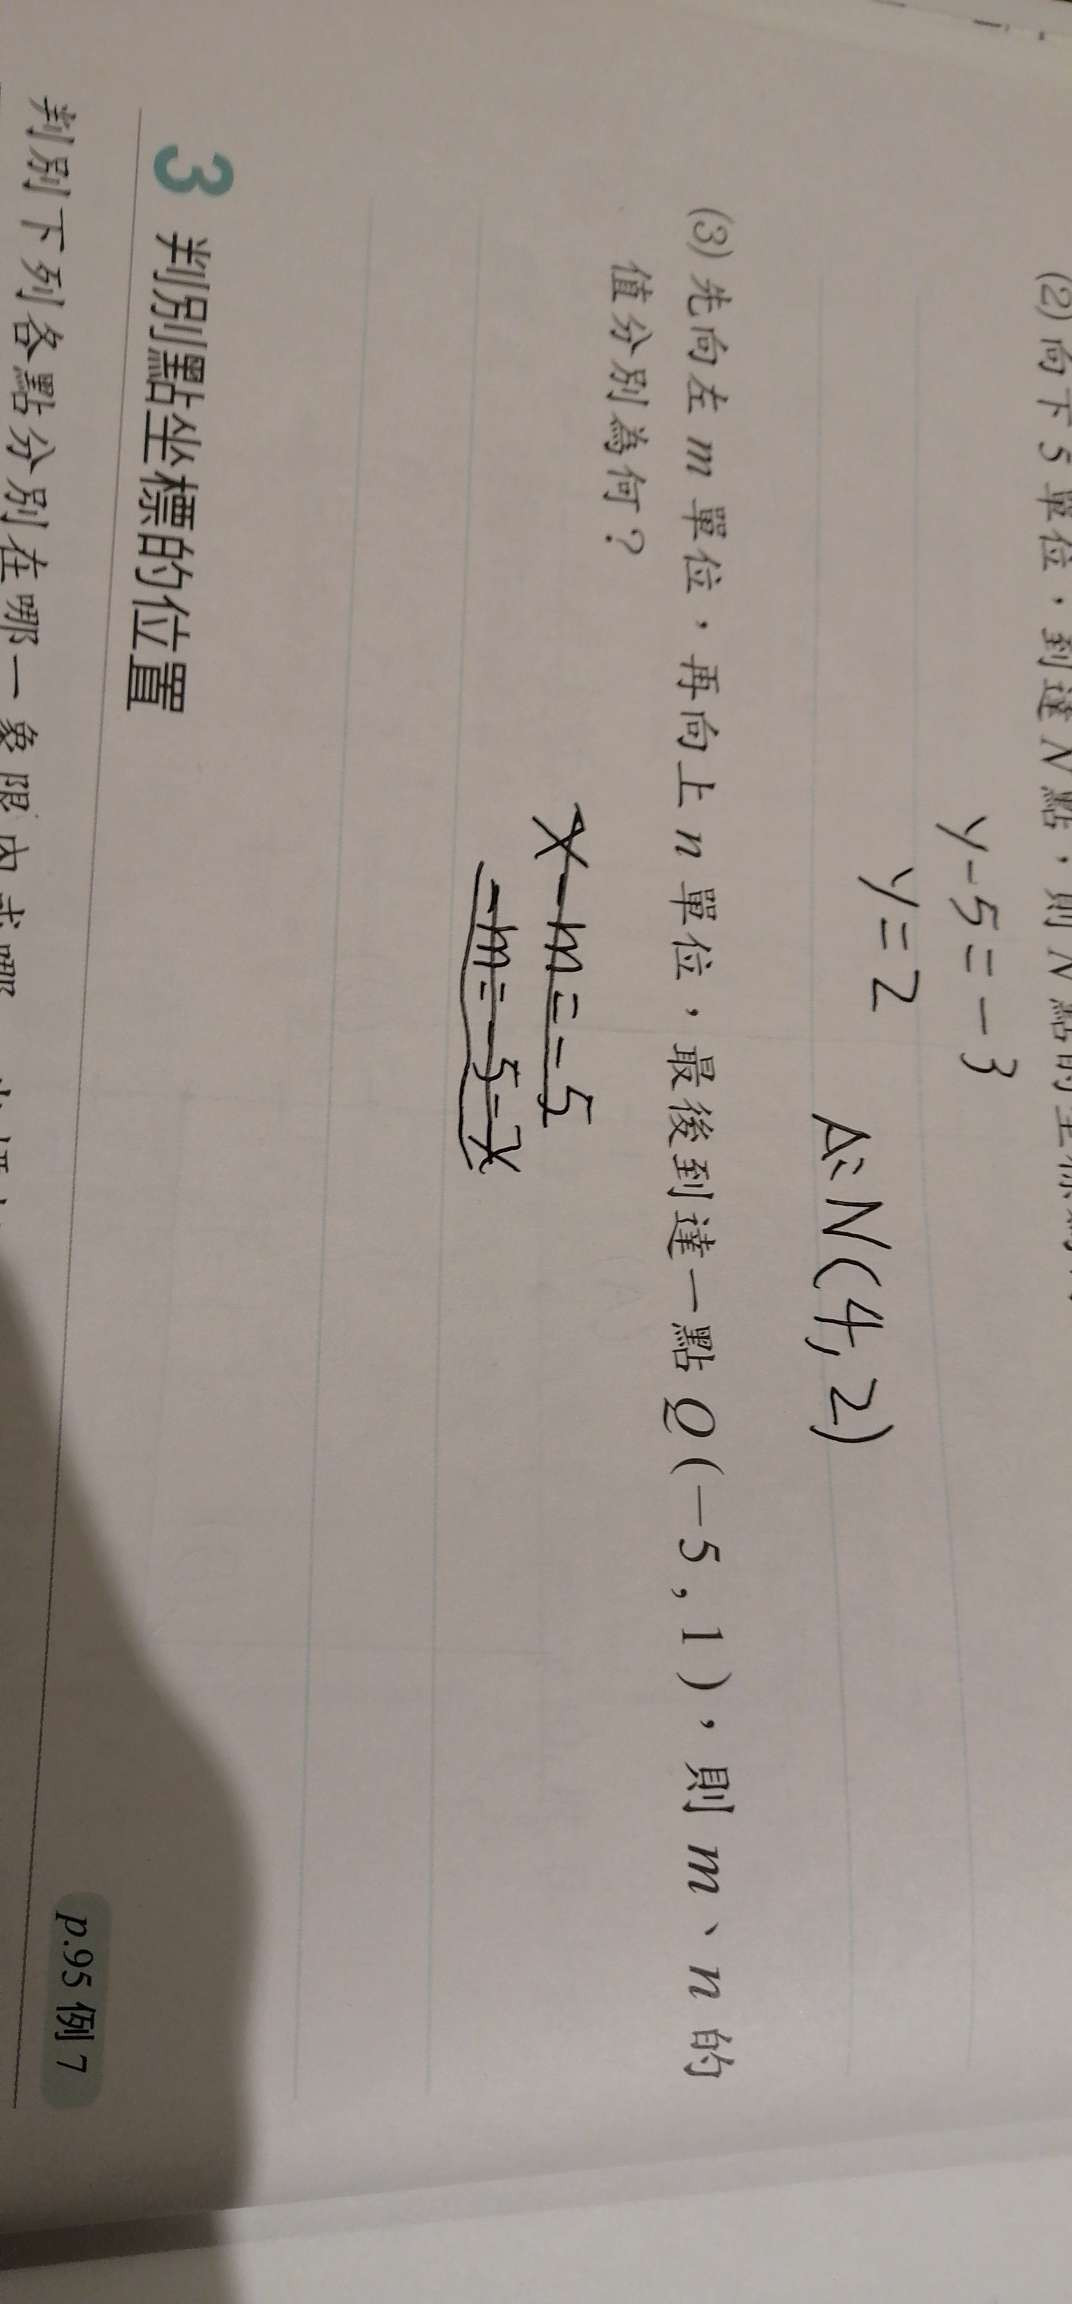 (2) 向下 5 單位,到達 N 點,則 N 點的坐標為
y-5=-3
y=2
A:N(4,2)
(3) 先向左 m 單位,再向上 n 單位,最後到達一點 Q(-5,1),則 m、n 的
值分別為何?
x-m=-5
-m=-5-x
3 判別點坐標的位置
p.95 例 7
判別下列各點分別在哪一象限內或哪